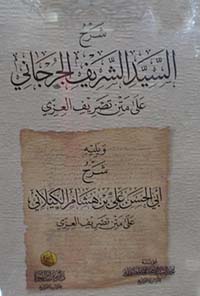 شرح
السيد الشريف الجرجاني
على متن تصريف العزي
ويليه
شرح
أبي الحسن علي بن هشام الكيلاني
على متن تصريف العزي